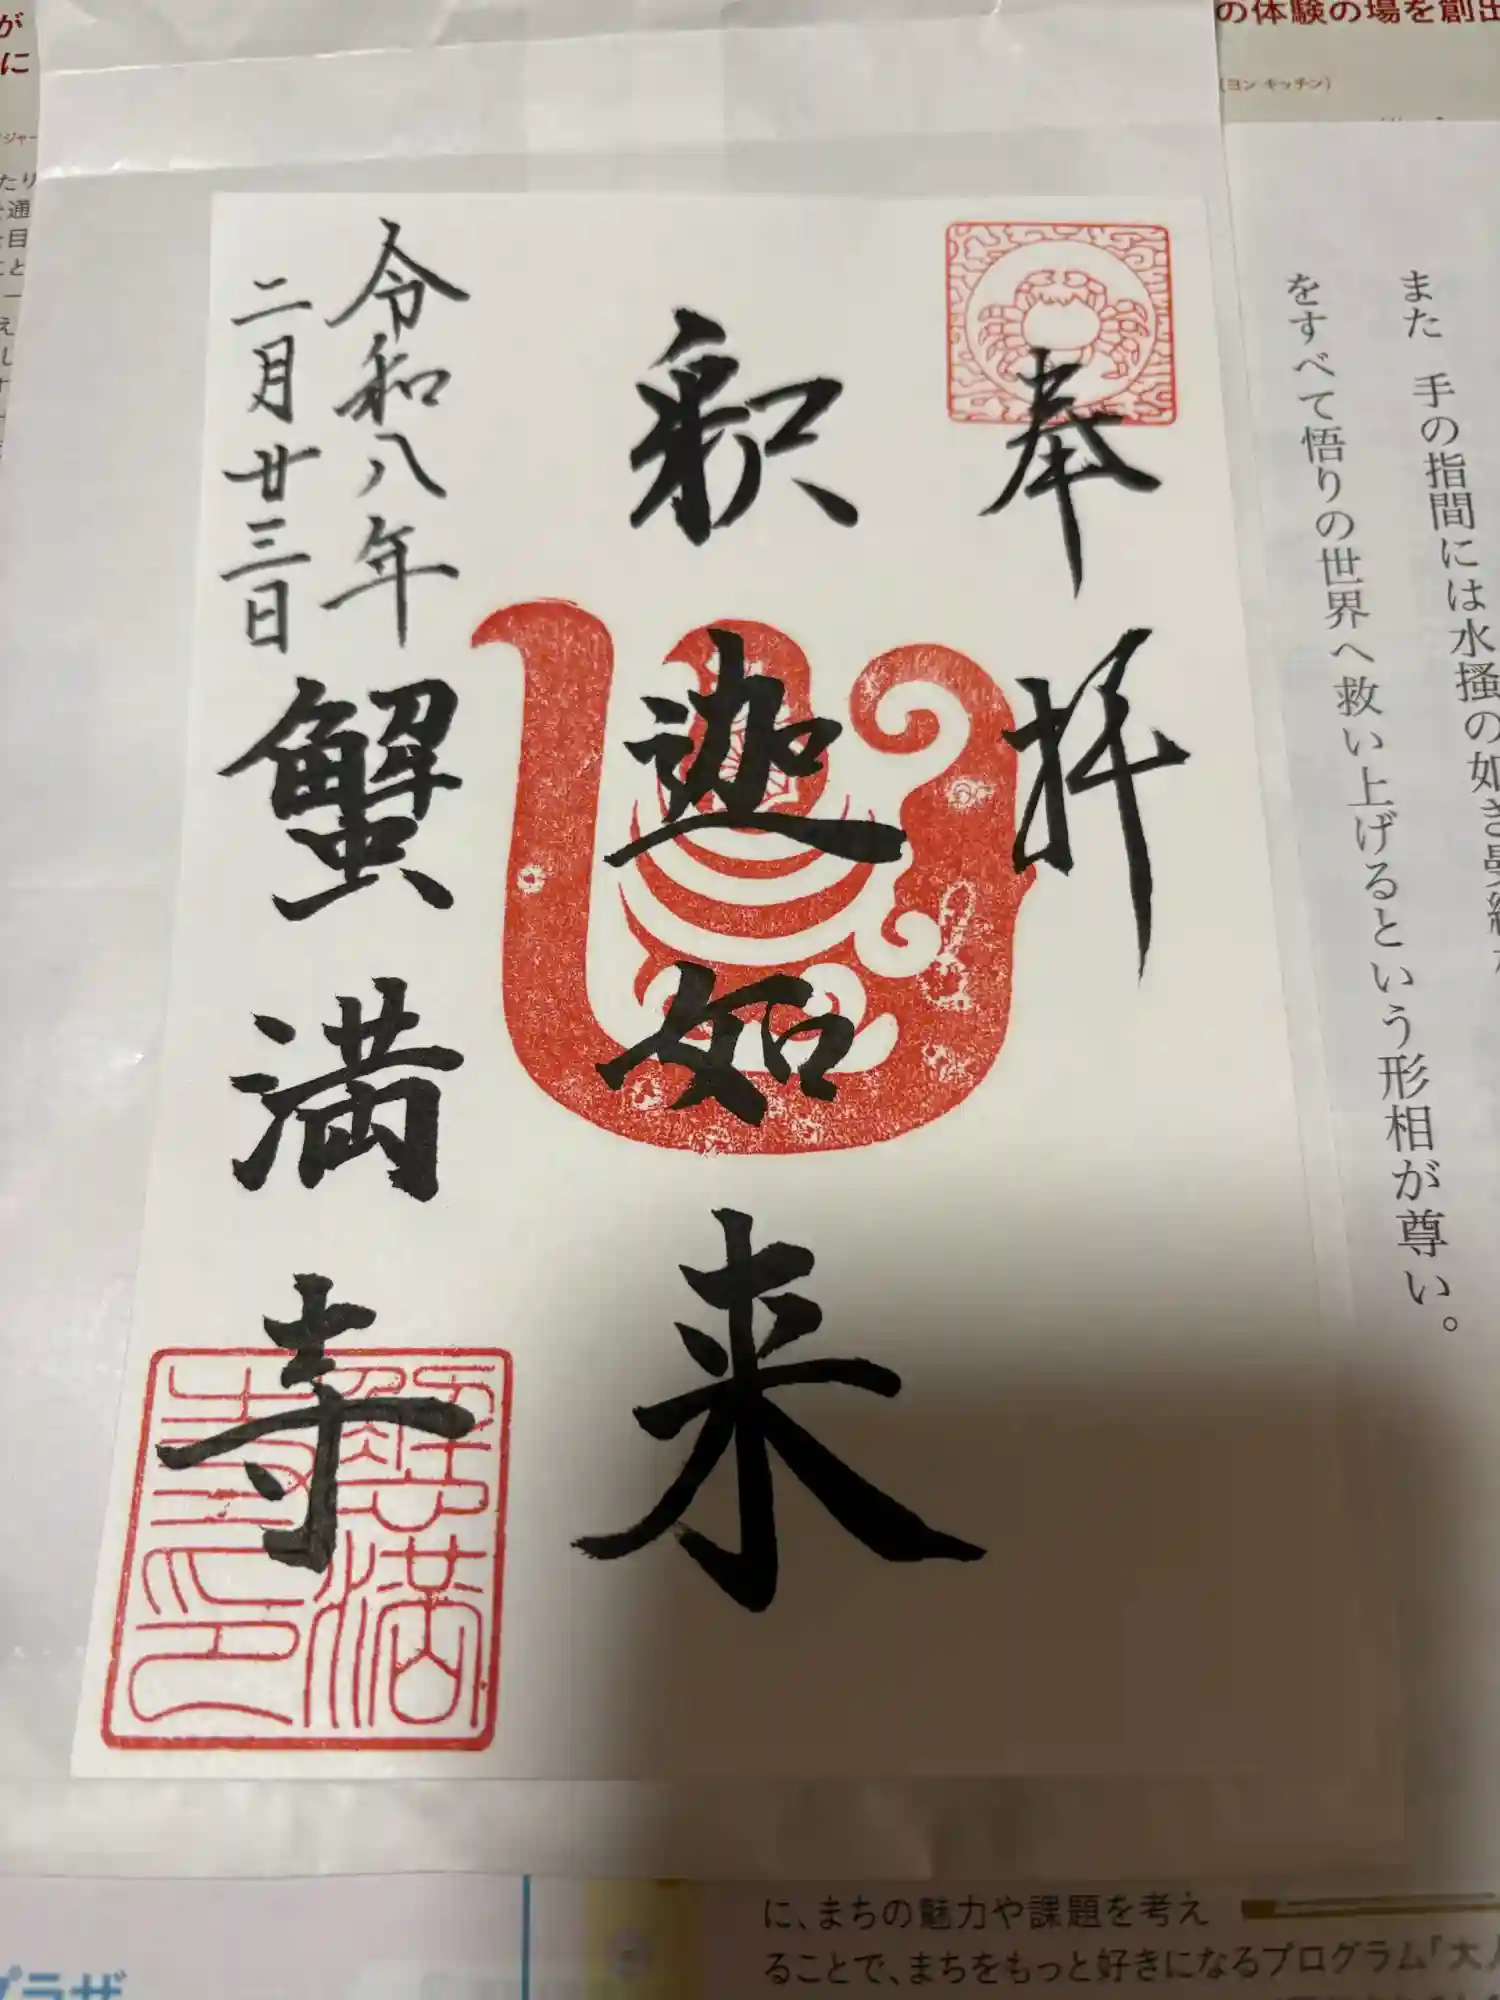 奉拝
釈迦如来
令和八年
二月廿三日
蟹満寺
蟹満寺印
また 手の指間には水掻の如き
をすべて悟りの世界へ救い上げるという形相が尊い。
の体験の場を創出
(ヨン キッチン)
が
に
ジャー
たり
通
目
こと
え
に、まちの魅力や課題を考え
ることで、まちをもっと好きになるプログラム「大人
プラザ